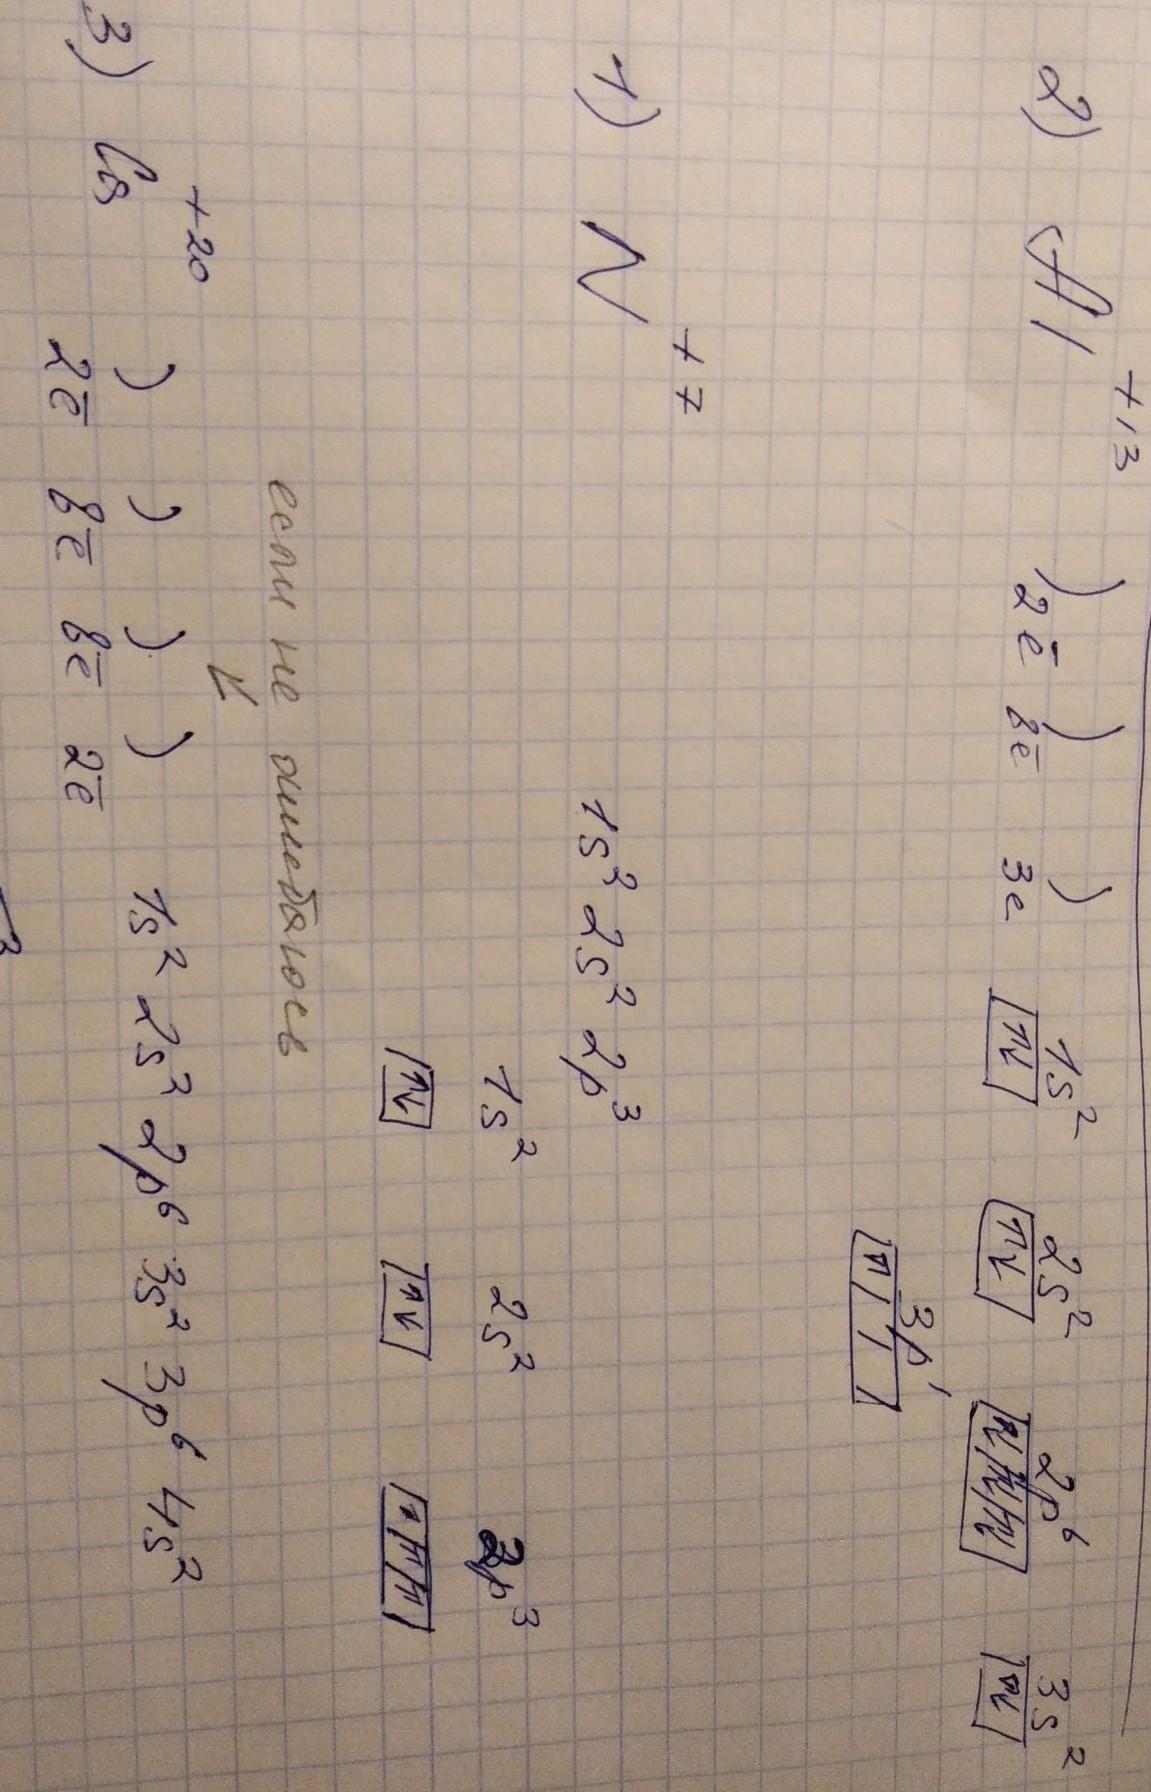 2) Al +13 ) ) )
2ē 8ē 3e
1s² 2s² 2p⁶ 3s²
↑↓ ↑↓ ↑↓ ↑↓ ↑↓ ↑↓
3p¹
↑
1) N +7 1s² 2s² 2p³
1s² 2s² 2p³
↑↓ ↑↓ ↑ ↑ ↑
если не ошибаюсь
↓
3) Ca +20 ) ) ) ) 1s² 2s² 2p⁶ 3s² 3p⁶ 4s²
2ē 8ē 8ē 2ē